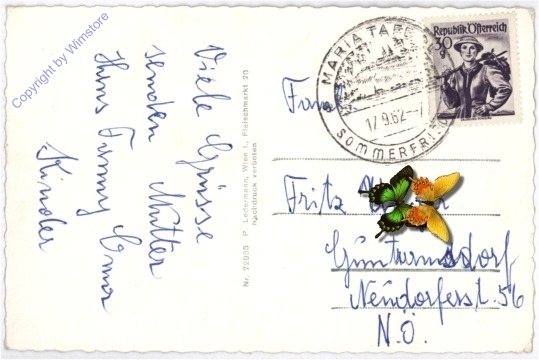 Copyright by Winstore
Viele Grüsse
senden Mutter
Hans Fanny Erna
Kinder
Nr. 72085 P. Ledermann, Wien I., Fleischmarkt 20
Nachdruck verboten
MARIA TAFERL
17.9.62
SOMMERFRI
Republik Österreich
30 g
Fam.
Fritz
Guntramsdorf
Neudorferst. 56
N.Ö.